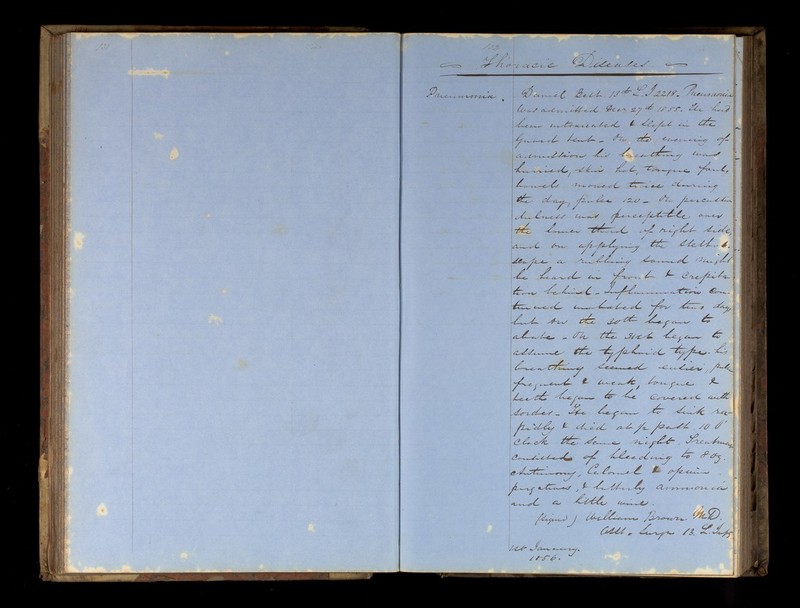 Thoracic Diseases
Pneumonia. Daniel Bebb. 13th L.I 2218. Pneumonia
was admitted Decr 27th 1855. He had
been intoxicated & slept in the
Guard tent - On the evening of
admission his breathing was
hurried, skin hot, tongue foul,
bowels moved twice during
the day, pulse 120 - On percussion
dulness was perceptible over
the lower third of right side
and on applying the stetho
scope a rubbing sound might
be heard in front & crepita
tion behind - Inflammation con
tinued unabated for two days
but on the 30th began to
abate - On the 31st began to
assume the typhoid type. his
breathing seemed easier, pulse
frequent & weak, tongue &
teeth began to be covered with
sordes - He began to sink ra
pidly & died at ½ past 10 O'
Clock the same night - Treatment
consisted of bleeding to 8 oz
Antimony, Calomel & opium -
purgatives, & latterly ammonia
and a little wine.
(Signed) William Brown M.D.
Asst. Surgn 13. L. Infy
1st January
1856.